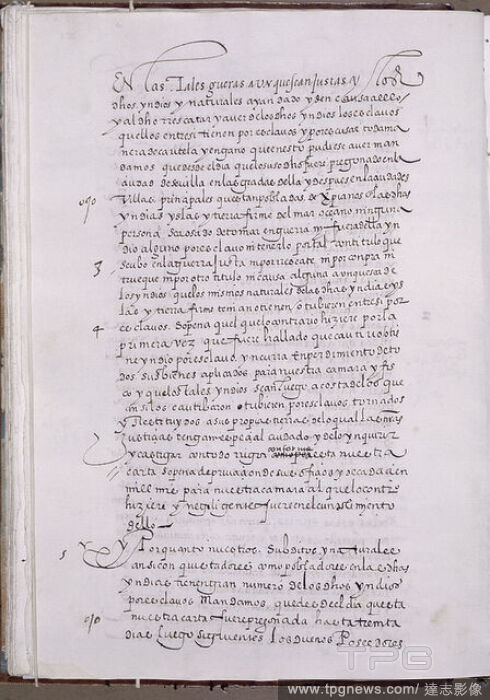 En las tales gueras aunque sean justas y los
dhos yndios y naturales ayan dado y den causa a ello
y al dho rrescatar y aver de los dhos yndios los esclavos
que ellos entre si tienen por esclavos y por escusar toda ma
nera de cautela y engano que en esto pudiese aver man
damos que desde el dia que lo suso dho fuere pregonado en la
ciudad de sevilla en las gradas della y despues en las ciudades
villas prinçipales questan pobladas de xpianos en las dhas
yndias yslas y tierra firme del mar oceano ninguna
persona sea osado de tomar en guerra ni fuera della yn
dio alguno por esclavo ni tenerlo por tal con titulo que
se ubo en la guerra justa ni por rrescate ni por conpra ni
3
trueque ni por otro titulo ni causa alguna aunque sea de
los yndios que los mismos naturales de las dhas yndias ys
las e tierra firme tenian o tienen o tubieren entre si por
4
esclavos so pena quel que lo contrario hiziere por la
primera vez que fuere hallado que cautivo o tie
ne yndio por esclavo yncurra en perdimiento de to
dos sus bienes aplicados para nuestra camara y fis
co y que los tales yndios sean luego a costa de los que
ansi los cautibaron o tubieren por esclavos tornados
y rrestituydos a sus propias tierras de lo qual las nras
justicias tengan espeçial cuidado y de lo ynquirir
y castigar con todo rrigor conforme a esta nuestra
carta so pena de privaçion de sus ofiçios y de cada cien
mill mrs para nuestra camara al que lo contro
hiziere y negligente fuere en el cunplimiento
dello
5
y Por quanto nuestros subditos y naturales
ansi conquistadores como pobladores en las dhas
yndias tienen gran numero de los dhos yndios
por esclavos Mandamos que desde el dia questa
nuestra carta fuere pregonada hasta treinta
dias luego siguientes los duenos Posedores
TPG
www.tpgnews.com / 達志影像